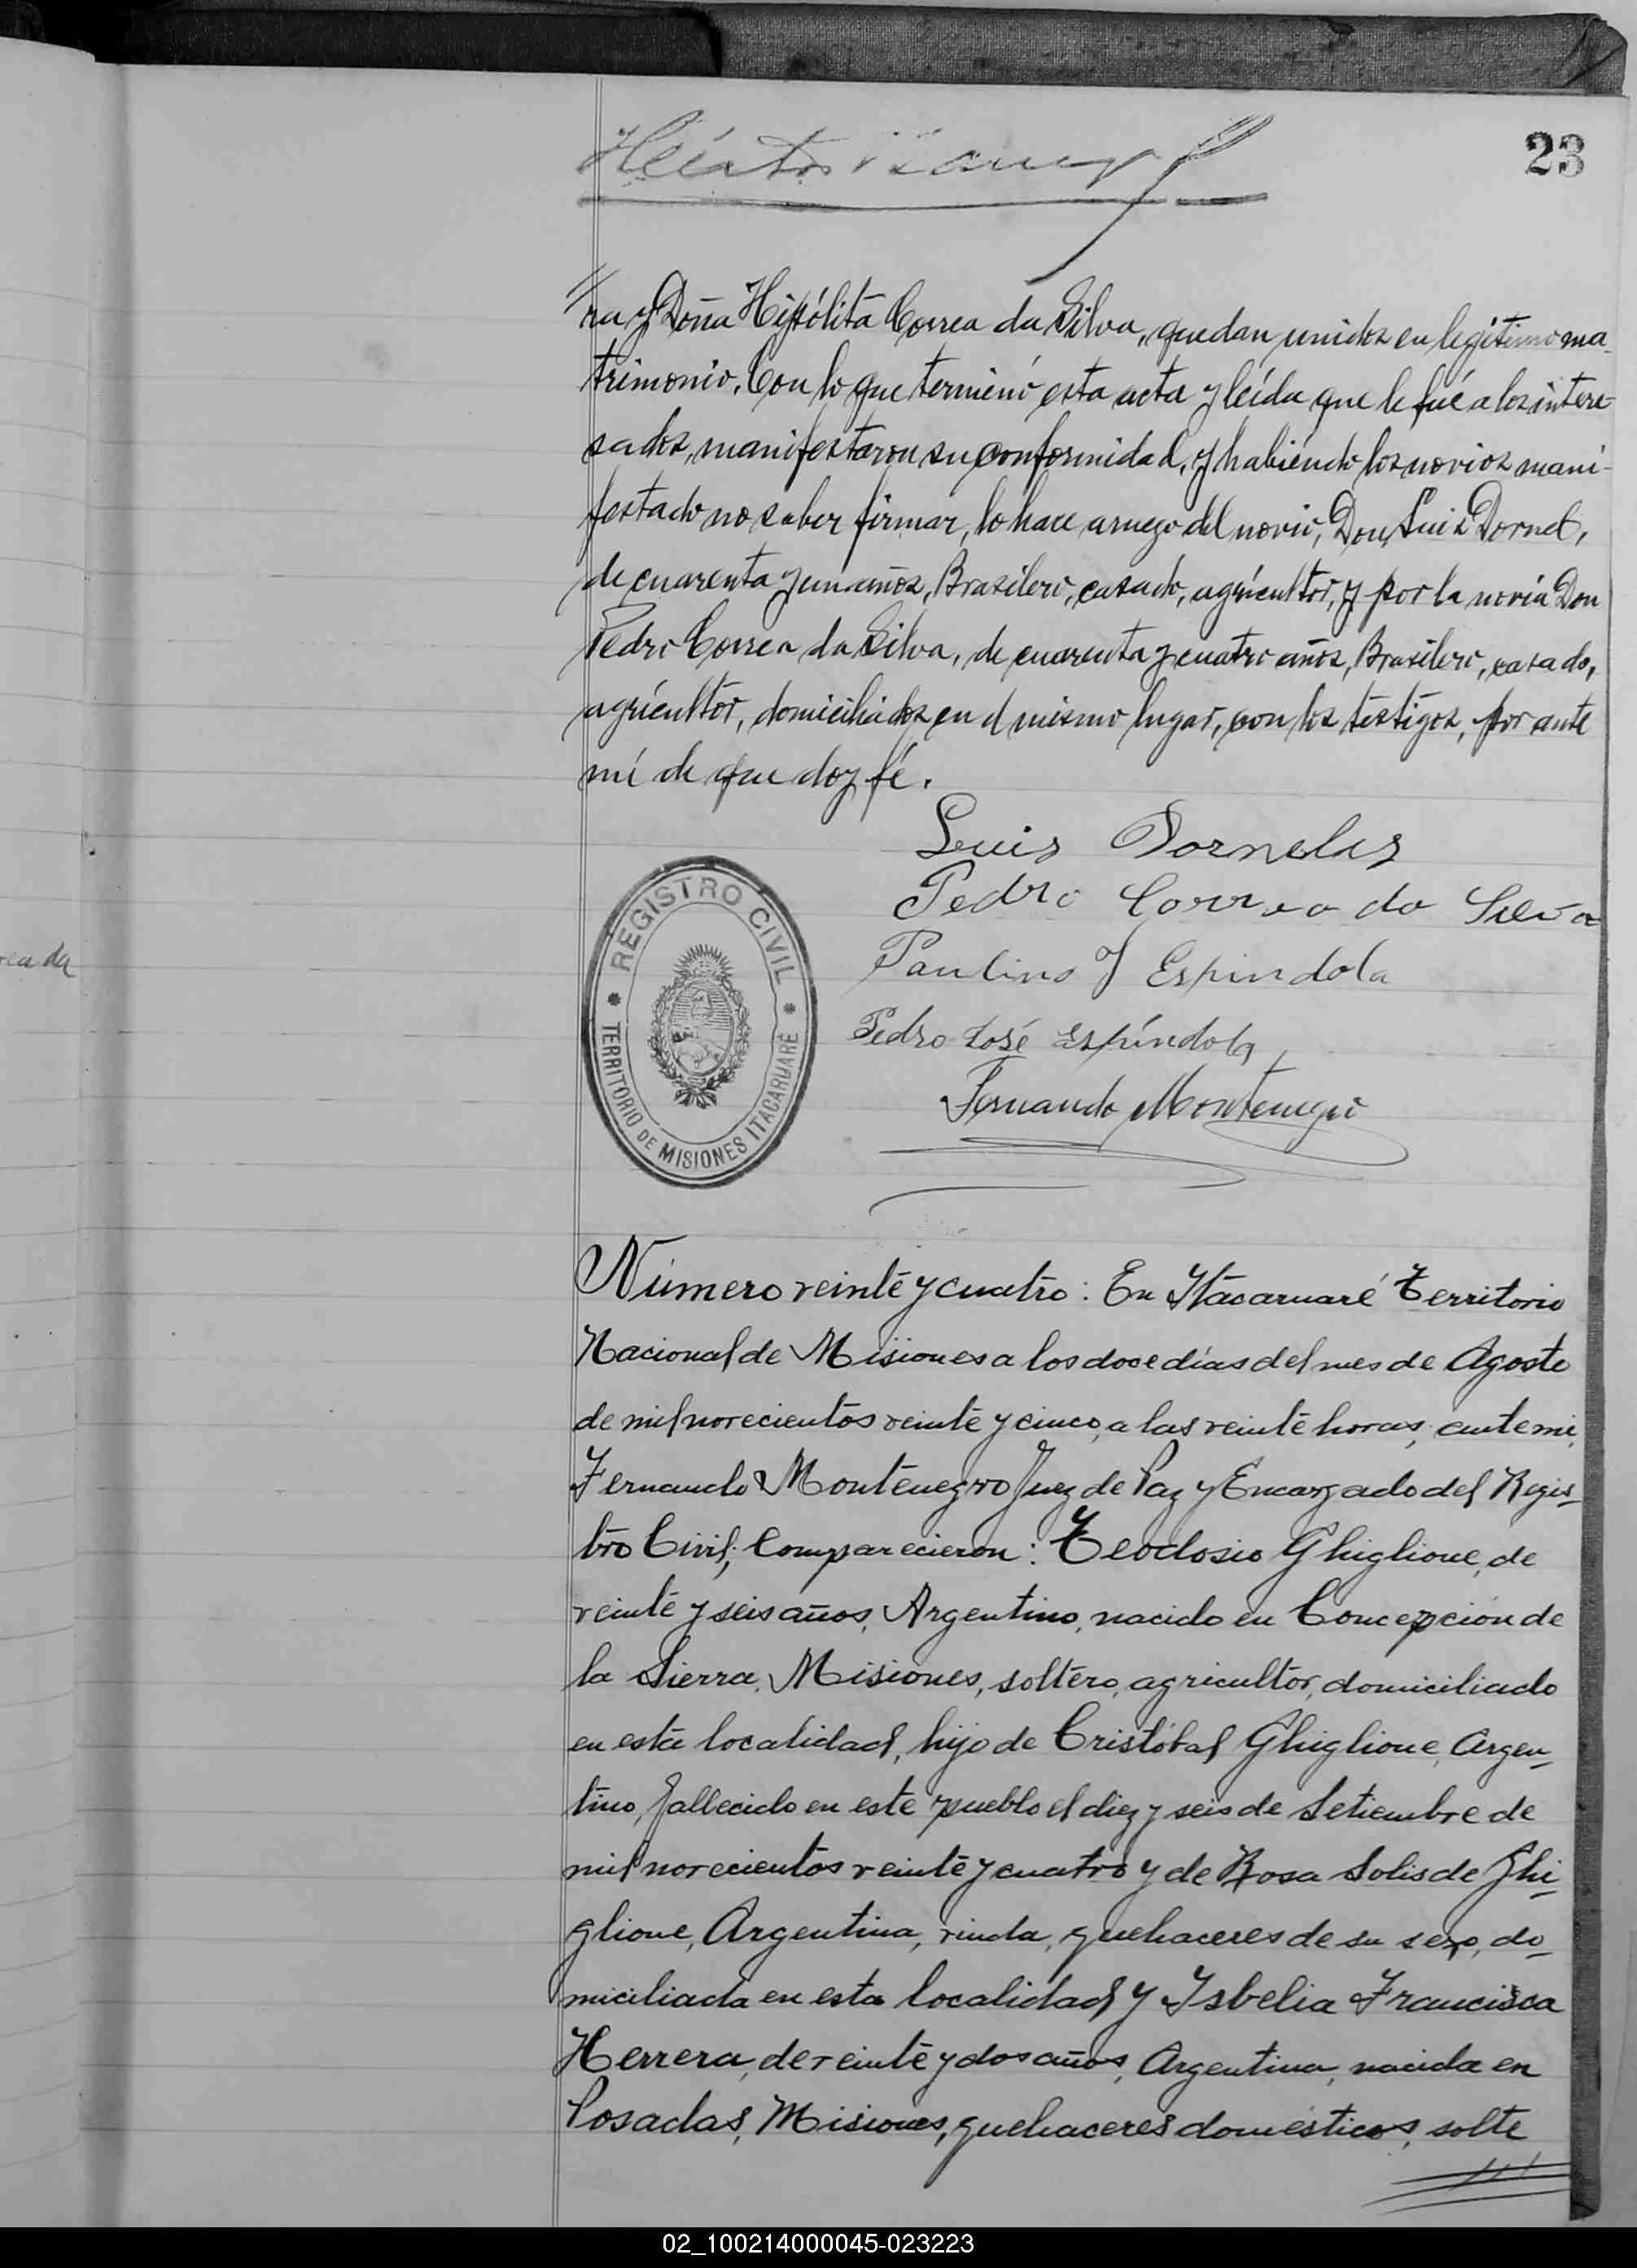 23
ra y Doña Hipólita Correa da Silva, quedan unidos en legítimo ma-
trimonio. Con lo que terminó esta acta y leída que le fué a los intere-
sados, manifestaron su conformidad, y habiendo los novios mani-
festado no saber firmar, lo hace a ruego del novio, Don Luis Dornel,
de cuarenta y un años, Brasilero, casado, agricultor, y por la novia Don
Pedro Correa da Silva, de cuarenta y cuatro años, Brasilero, casado,
agricultor, domiciliados en el mismo lugar, con los testigos, por ante
mí de que doy fé.
Luis Dornelas
Pedro Correa da Silva
Paulino J Espindola
Pedro José Espíndola
Fernando Montenegro
REGISTRO CIVIL
TERRITORIO DE MISIONES ITACARUARÉ
rea da
Número veinte y cuatro: En Ytacaruaré Territorio
Nacional de Misiones a los doce días del mes de Agosto
de mil novecientos veinte y cinco, a las veinte horas, ante mi,
Fernando Montenegro Juez de Paz y Encargado del Regis-
tro Civil, Comparecieron: Teodosio Ghiglione, de
veinte y seis años, Argentino, nacido en Concepción de
la Sierra, Misiones, soltero, agricultor, domiciliado
en esta localidad, hijo de Cristóbal Ghiglione, Argen-
tino, fallecido en este pueblo el diez y seis de Setiembre de
mil novecientos veinte y cuatro y de Rosa Solis de Ghi-
glione, Argentina, viuda, quehaceres de su sexo, do-
miciliada en esta localidad y Ysbelia Francisca
Herrera, de veinte y dos años, Argentina, nacida en
Posadas, Misiones, quehaceres domésticos, solte
02_100214000045-023223